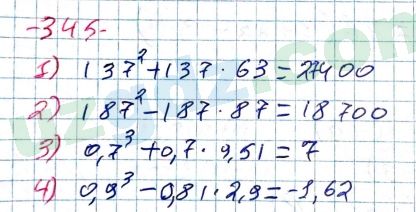 -345-
1) 137² + 137 · 63 = 27400
2) 187² - 187 · 87 = 18700
3) 0,7³ + 0,7 · 9,51 = 7
4) 0,9³ - 0,81 · 2,9 = -1,62